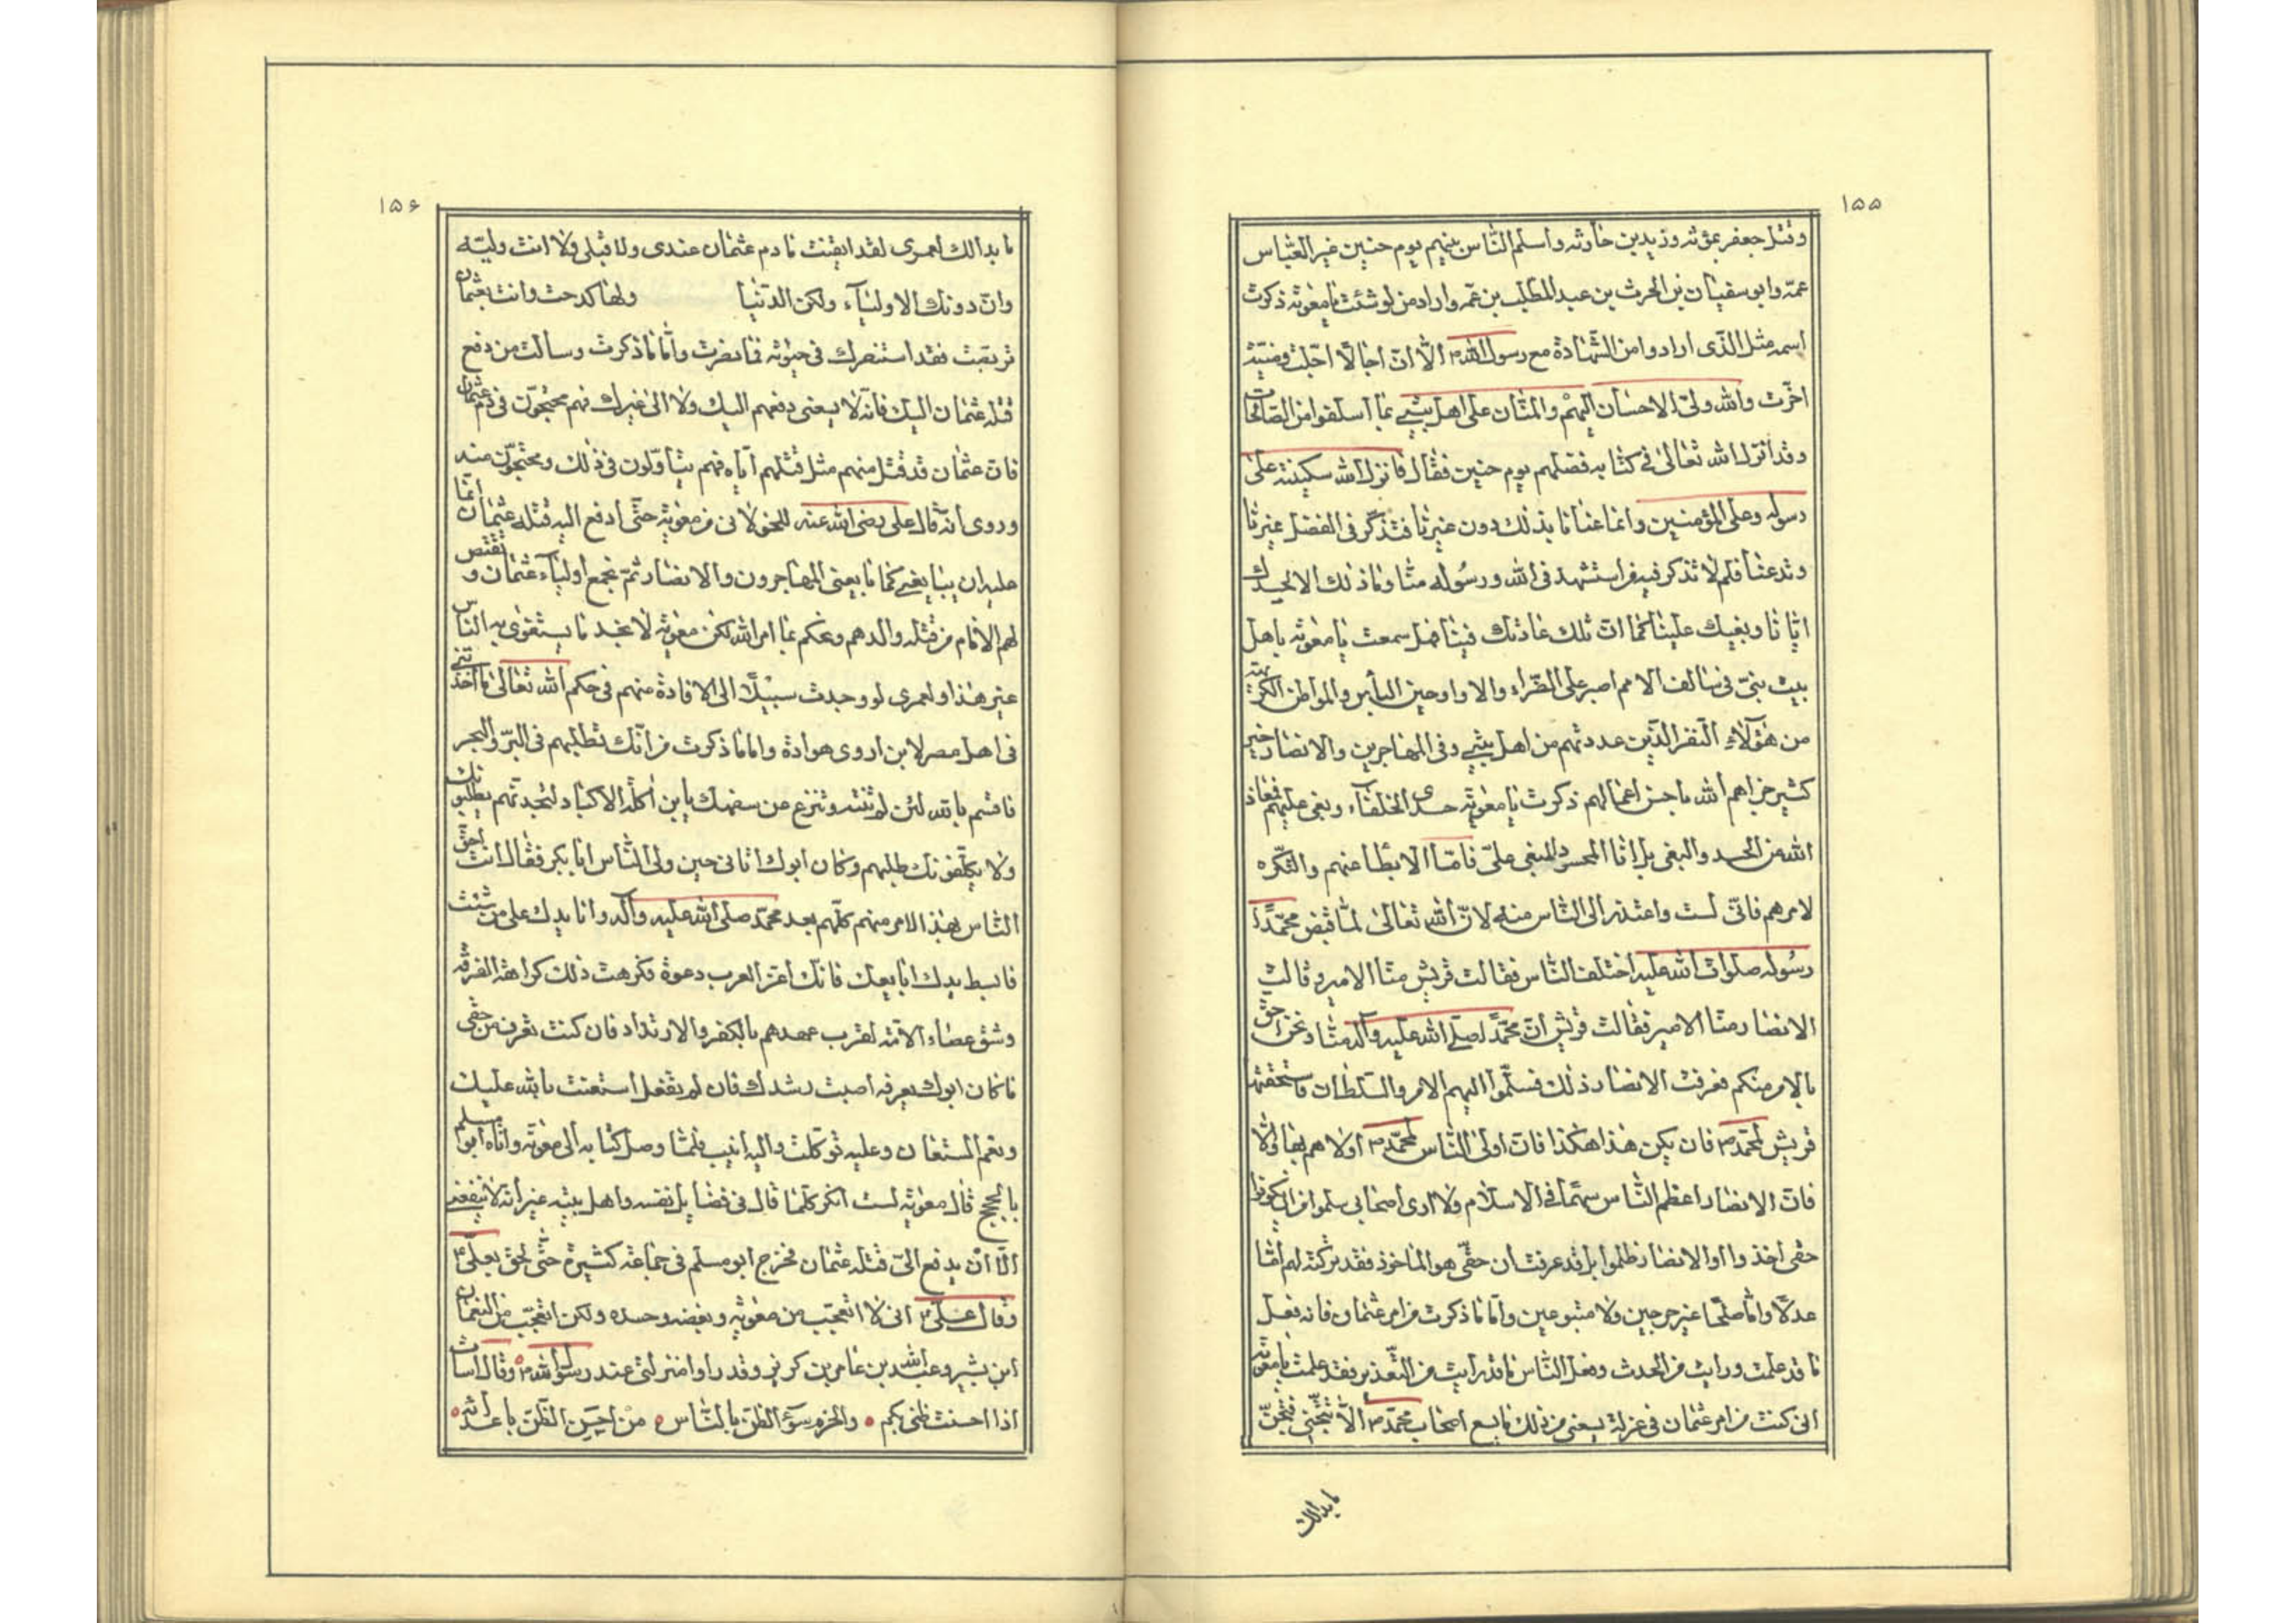 ١٥٥
وقتل جعفر بمؤته وزيد بن حارثه وأسلم الناس بينهم يوم حنين غير العباس
عمّه وابو سفيان بن الحرث بن عبد المطلب بن عمه واراد من لو شئت يا معوية ذكرت
اسمه مثل الذى أرادوا من الشهادة مع رسول الله ص ألا ان أجالا أجلت ومنيته
أخرت والله ولىّ الاحسان اليهم والمنّان على اهل بيتى بما أسلفوا من الصالحات
وقد انزل الله تعالى فى كتابه فضلهم يوم حنين فقال فانزل الله سكينته على
رسوله وعلى المؤمنين وانما عنانا بذلك دون غيرنا فتذكر فى الفضل غيرنا
وتدعنا فلم لا تذكر فيه من استشهد فى الله ورسوله منّا وما ذلك الا لحسدك
ايّانا وبغيك علينا كما انّ تلك عادتك فينا هل سمعت يا معوية باهل
بيت نبىّ فى سالف الامم اصبر على الضّراء والاواء وحين البأس والمواطن الكريهة
من هؤلاء النفر الذين عددتهم من اهل بيتى وفى المهاجرين والانصار خير
كثير جزاهم الله باحسن أعمالهم ذكرت يا معوية حسدى الخلفاء وبغى عليهم فمعاذ
الله من الحسد والبغى بل انا المحسود المبغى علىّ فامّا الابطأ عنهم والتكره
لامرهم فانّى لست واعتذر الى الناس منه لانّ الله تعالى لمّا قبض محمّدًا
رسوله صلوات الله عليه اختلف الناس فقالت قريش منّا الامير وقالت
الانصار منّا الامير فقالت قريش انّ محمّدًا صلى الله عليه وآله منّا ونحن احق
بالامر منكم فعرفت الانصار ذلك فسلّموا اليهم الامر والسلطان فاستحقتها
قريش لمحمّد ص فان يكن هذا هكذا فانّ اولى الناس لمحمّد ص أولاهم بها والّا
فانّ الانصار اعظم الناس سهمًا فى الاسلام ولا ادرى أصحابى سلموا من ان يكونوا
حقى أخذوا او الانصار ظلموا بل قد عرفت أن حقّى هو المأخوذ فقد تركته لهم أمّا
عدلًا وامّا صلحًا غير حرجين ولا متبوعين وأمّا ما ذكرت من امر عثمان فانه فعل
ما قد علمت ورايت من الحدث وفعل الناس ما قد رأيت من التعذير فقد علمت يا معوية
انى كنت من امر عثمان فى عزلة يسعنى من ذلك ما يسع أصحاب محمّد ص الّا تتجنّى فتجنّ
ما بدالك
١٥۶
ما بدالك لعمرى لقد ايقنت ما دم عثمان عندى ولا قبلى ولا انت وليّه
وانّ دونك الاولياء ولكن الدنيا ولها كدحت وانت بعثمان
تربصت فقد استنصرك فى حيوته فما نصرت وأمّا ما ذكرت وسالت من دفع
قتله عثمان اليك فانه لا يسعنى دفعهم اليك ولا الى غيرك فهم محتجون فى دم عثمان
فان عثمان قد قتل منهم مثل قتلهم ايّاه فهم يتأوّلون فى ذلك ويحتجّون منه
وروى أنه قال على رضى الله عنه للخولانى من معوية حتّى أدفع اليه قتله عثمان انّما
عليه ان يبايعنى كما بايعنى المهاجرون والانصار ثمّ نجمع أولياء عثمان ونقتص
لهم الامام من قتله والدهم ونحكم بما امر الله لكن معوية لا يجد ما يستغوى به الناس
غير هذا ولعمرى لو وجدت سبيلًا الى الاقادة منهم فى حكم الله تعالى ما أخذتنى
فى اهل مصر لابن أروى هوادة واما ما ذكرت من انّك تطلبهم فى البرّ والبحر
فاقسم بالله لئن لم تنته وتنزع من سفهك يا بن أكلة الاكباد لتجدنّهم يطلبونك
ولا يكلّفونك طلبهم وكان ابوك اتانى حين ولى الناس ابا بكر فقال انت احقّ
الناس بهذا الامر منهم كلّهم بعد محمّد صلى الله عليه وآله وانا يدك على من شئت
فابسط يدك ابايعك فانّك أعز العرب دعوة فكرهت ذلك كراهة الفرقه
وشق عصاء الامّة لقرب عهدهم بالكفر والارتداد فان كنت تعرف من حقى
ما كان ابوك يعرفه أصبت رشدك فان لم تفعل استعنت بالله عليك
ونعم المستعان وعليه توكلت واليه أنيب فلمّا وصل كتابه الى معوية وأتاه ابو مسلم
بالحجج قال معوية لست انكر كلّما قال فى فضايل نفسه واهل بيته غير أنه لا ينفعنى
الّا أن يدفع الىّ قتله عثمان فخرج ابو مسلم فى جماعة كثيرة حتّى لحق بعلىّ ع
وقال علىّ ع انى لا أتعجب من معوية وبغضه وحسده ولكن أتعجّب من النعمان
ابن بشير وعبد الله بن عامر بن كريز وقد راوا منزلتى عند رسول الله ص وقال اسات
اذا احسنت ظنى بكم والحزم سوء الظن بالناس من احسن الظن باعدائه